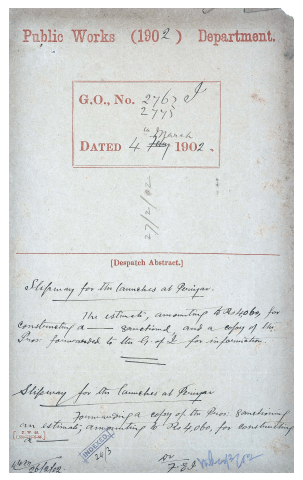 Public Works (1902) Department.
G.O., No. 2763 I
2775
DATED 4 March 1902.
27/2/02
[Despatch Abstract.]
Slipway for the launches at Periyar.
The estimate, amounting to Rs 4,060, for
constructing a —— sanctioned, and a copy of the
Proc forwarded to the G of I for information.
Slipway for the launches at Periyar
Forwarding a copy of the Proc. sanctioning
an estimate, amounting to Rs 4,060, for constructing
a ——
INDEXED
26/3